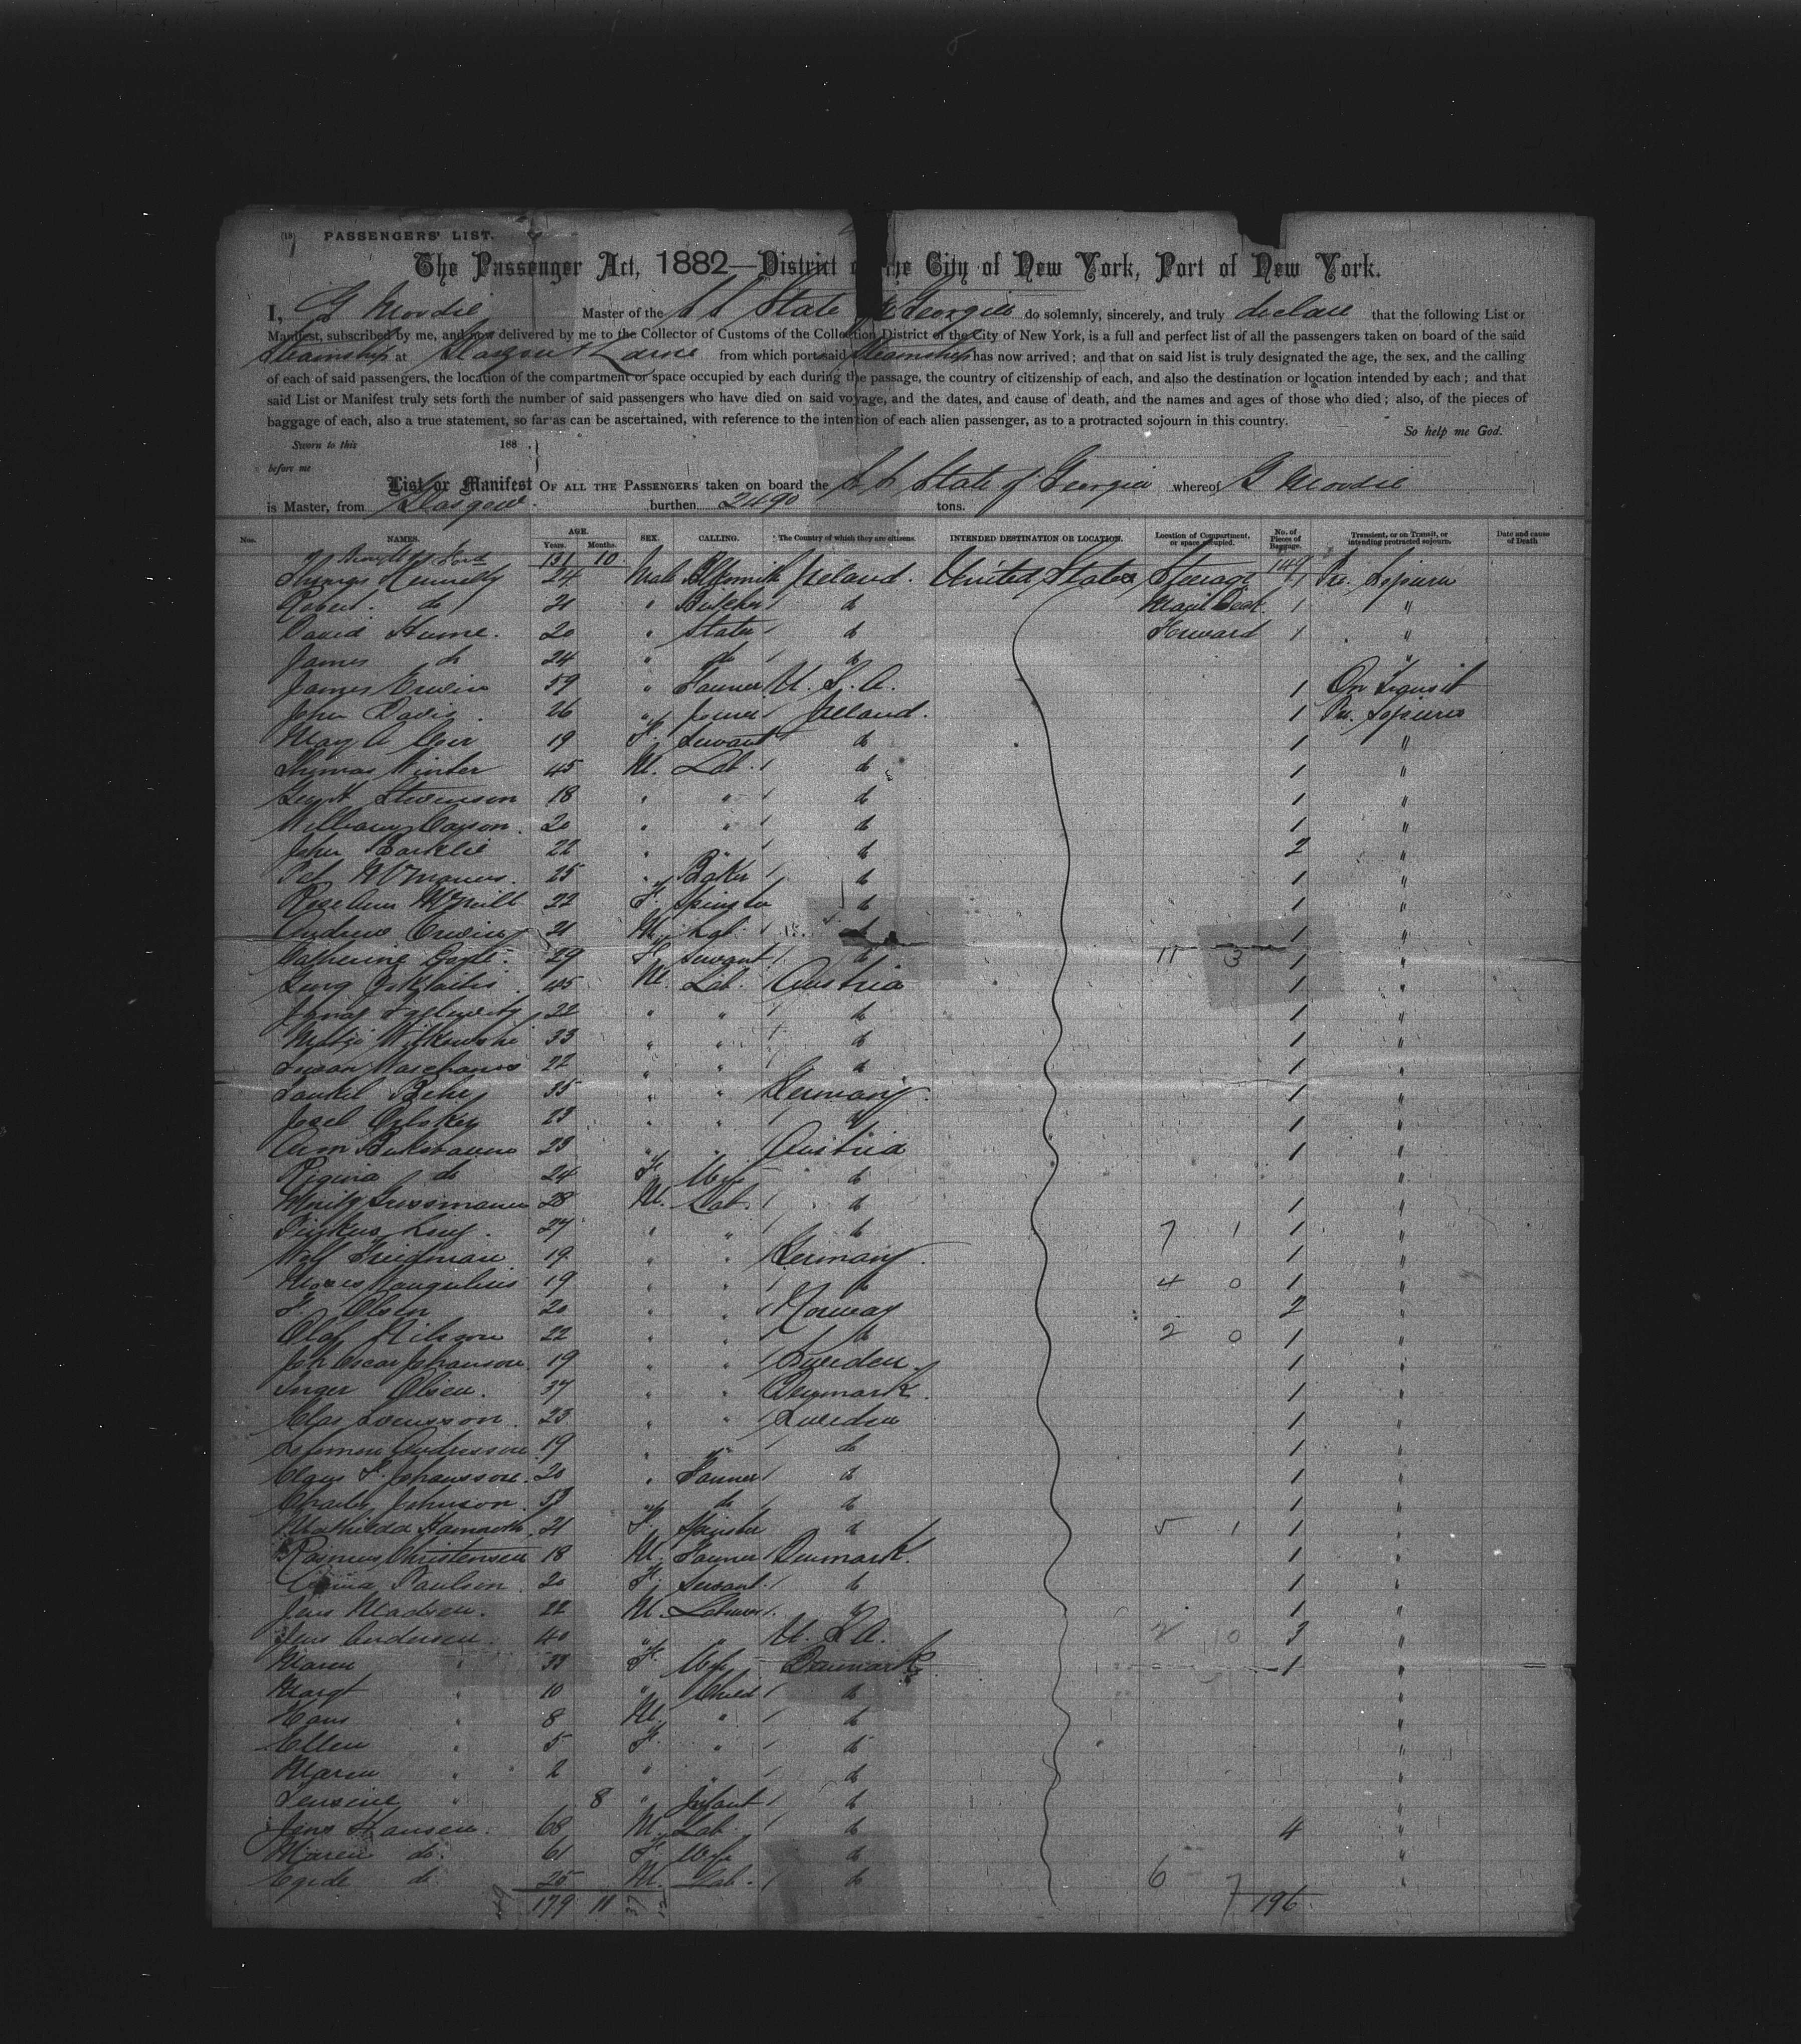 (18) PASSENGERS' LIST.
The Passenger Act, 1882—District of the City of New York, Port of New York.
I, G Moodie Master of the S S State of Georgia do solemnly, sincerely, and truly declare that the following List or
Manifest, subscribed by me, and now delivered by me to the Collector of Customs of the Collection District of the City of New York, is a full and perfect list of all the passengers taken on board of the said
Steamship at Glasgow & Larne from which port said Steamship has now arrived; and that on said list is truly designated the age, the sex, and the calling
of each of said passengers, the location of the compartment or space occupied by each during the passage, the country of citizenship of each, and also the destination or location intended by each; and that
said List or Manifest truly sets forth the number of said passengers who have died on said voyage, and the dates, and cause of death, and the names and ages of those who died; also, of the pieces of
baggage of each, also a true statement, so far as can be ascertained, with reference to the intention of each alien passenger, as to a protracted sojourn in this country. So help me God.
Sworn to this 188
before me
List or Manifest OF ALL THE PASSENGERS taken on board the S S State of Georgia whereof G Moodie
is Master, from Glasgow burthen 2490 tons.
Nos. NAMES. AGE. Years. Months. SEX. CALLING. The Country of which they are citizens. INTENDED DESTINATION OR LOCATION. Location of Compartment, or space occupied. No. of Pieces of Baggage. Transient, or on Transit, or intending protracted sojourn. Date and cause of Death
Brought Ford 131 10 144
Thomas Kennedy 24 Male Blksmith Ireland. United States Steerage 1 Pro. Sojourn
Robert do 21 " Butcher do Main Deck 1 "
David Hume. 20 " Slater do Forward 1 "
James do 24 " do do "
James Erwin 59 " Farmer U. S. A. 1 On Transit
John Davis 26 " Joiner Ireland. 1 Pro. Sojourn
Mary A 19 F. Servant do 1 "
Thomas Winter 45 M. Lab. do 1 "
Stevenson 18 " " do 1 "
William Carson. 20 " " do 1 "
John Barklie 22 " " do 2 "
Pat McManus. 25 " Baker do 1 "
Rose Ann McNeill 22 F. Spinster do 1 "
Andrew Erwin 21 M. Lab. do 1 "
Catherine 29 F. Servant do 11 3 1 "
45 M. Lab. Austria 1 "
22 " " do 1 "
Witkowski 33 " " do 1 "
22 " " do 1 "
35 " " Germany 1 "
23 " " do 1 "
23 " " Austria 1 "
Regina do 24 F. Wife do "
Moritz Sussmann 28 M. Lab. do 1 "
Pinkus 27 " " do 7 1 1 "
Wolf Friedman 19 " " Germany 1 "
Moses 19 " " do 4 0 1 "
F. Olsen 20 " " Norway 2 "
Olof Nilsson 22 " " do 2 0 1 "
Joh Oscar Johanson 19 " " Sweden 1 "
Inger Olsen. 37 " " Denmark 1 "
Clas Svensson 23 " " Sweden 1 "
Andresson 19 " " do 1 "
Claus F. Johansson. 20 " Farmer do 1 "
Charles Johnson " do do 1 "
Mathilda 21 F. Spinster do 5 1 1 "
Rasmus Christensen 18 M. Farmer Denmark. 1 "
Paulsen 20 F. Servant do 1 "
Jens Madsen. 22 M. Labourer do 1 "
Jens Andersen 40 " " U. S. A. 2 0 3 "
Maren " 33 F. Wife Denmark 1 "
Margt " 10 " Child do "
Hans " 8 M. " do "
Ellen " 5 F. " do "
Maren " 2 " " do "
Jensine " 8 " Infant do "
Jens Hansen. 68 M. Lab. do 4 "
Maren do. 61 F. Wife do "
do 25 M. Lab. do 6 7 "
49 179 11 37 12 196